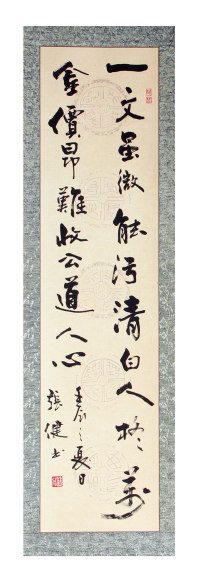 一文虽微能污清白人格万
金價昂難收公道人心
壬辰之夏日
張健书